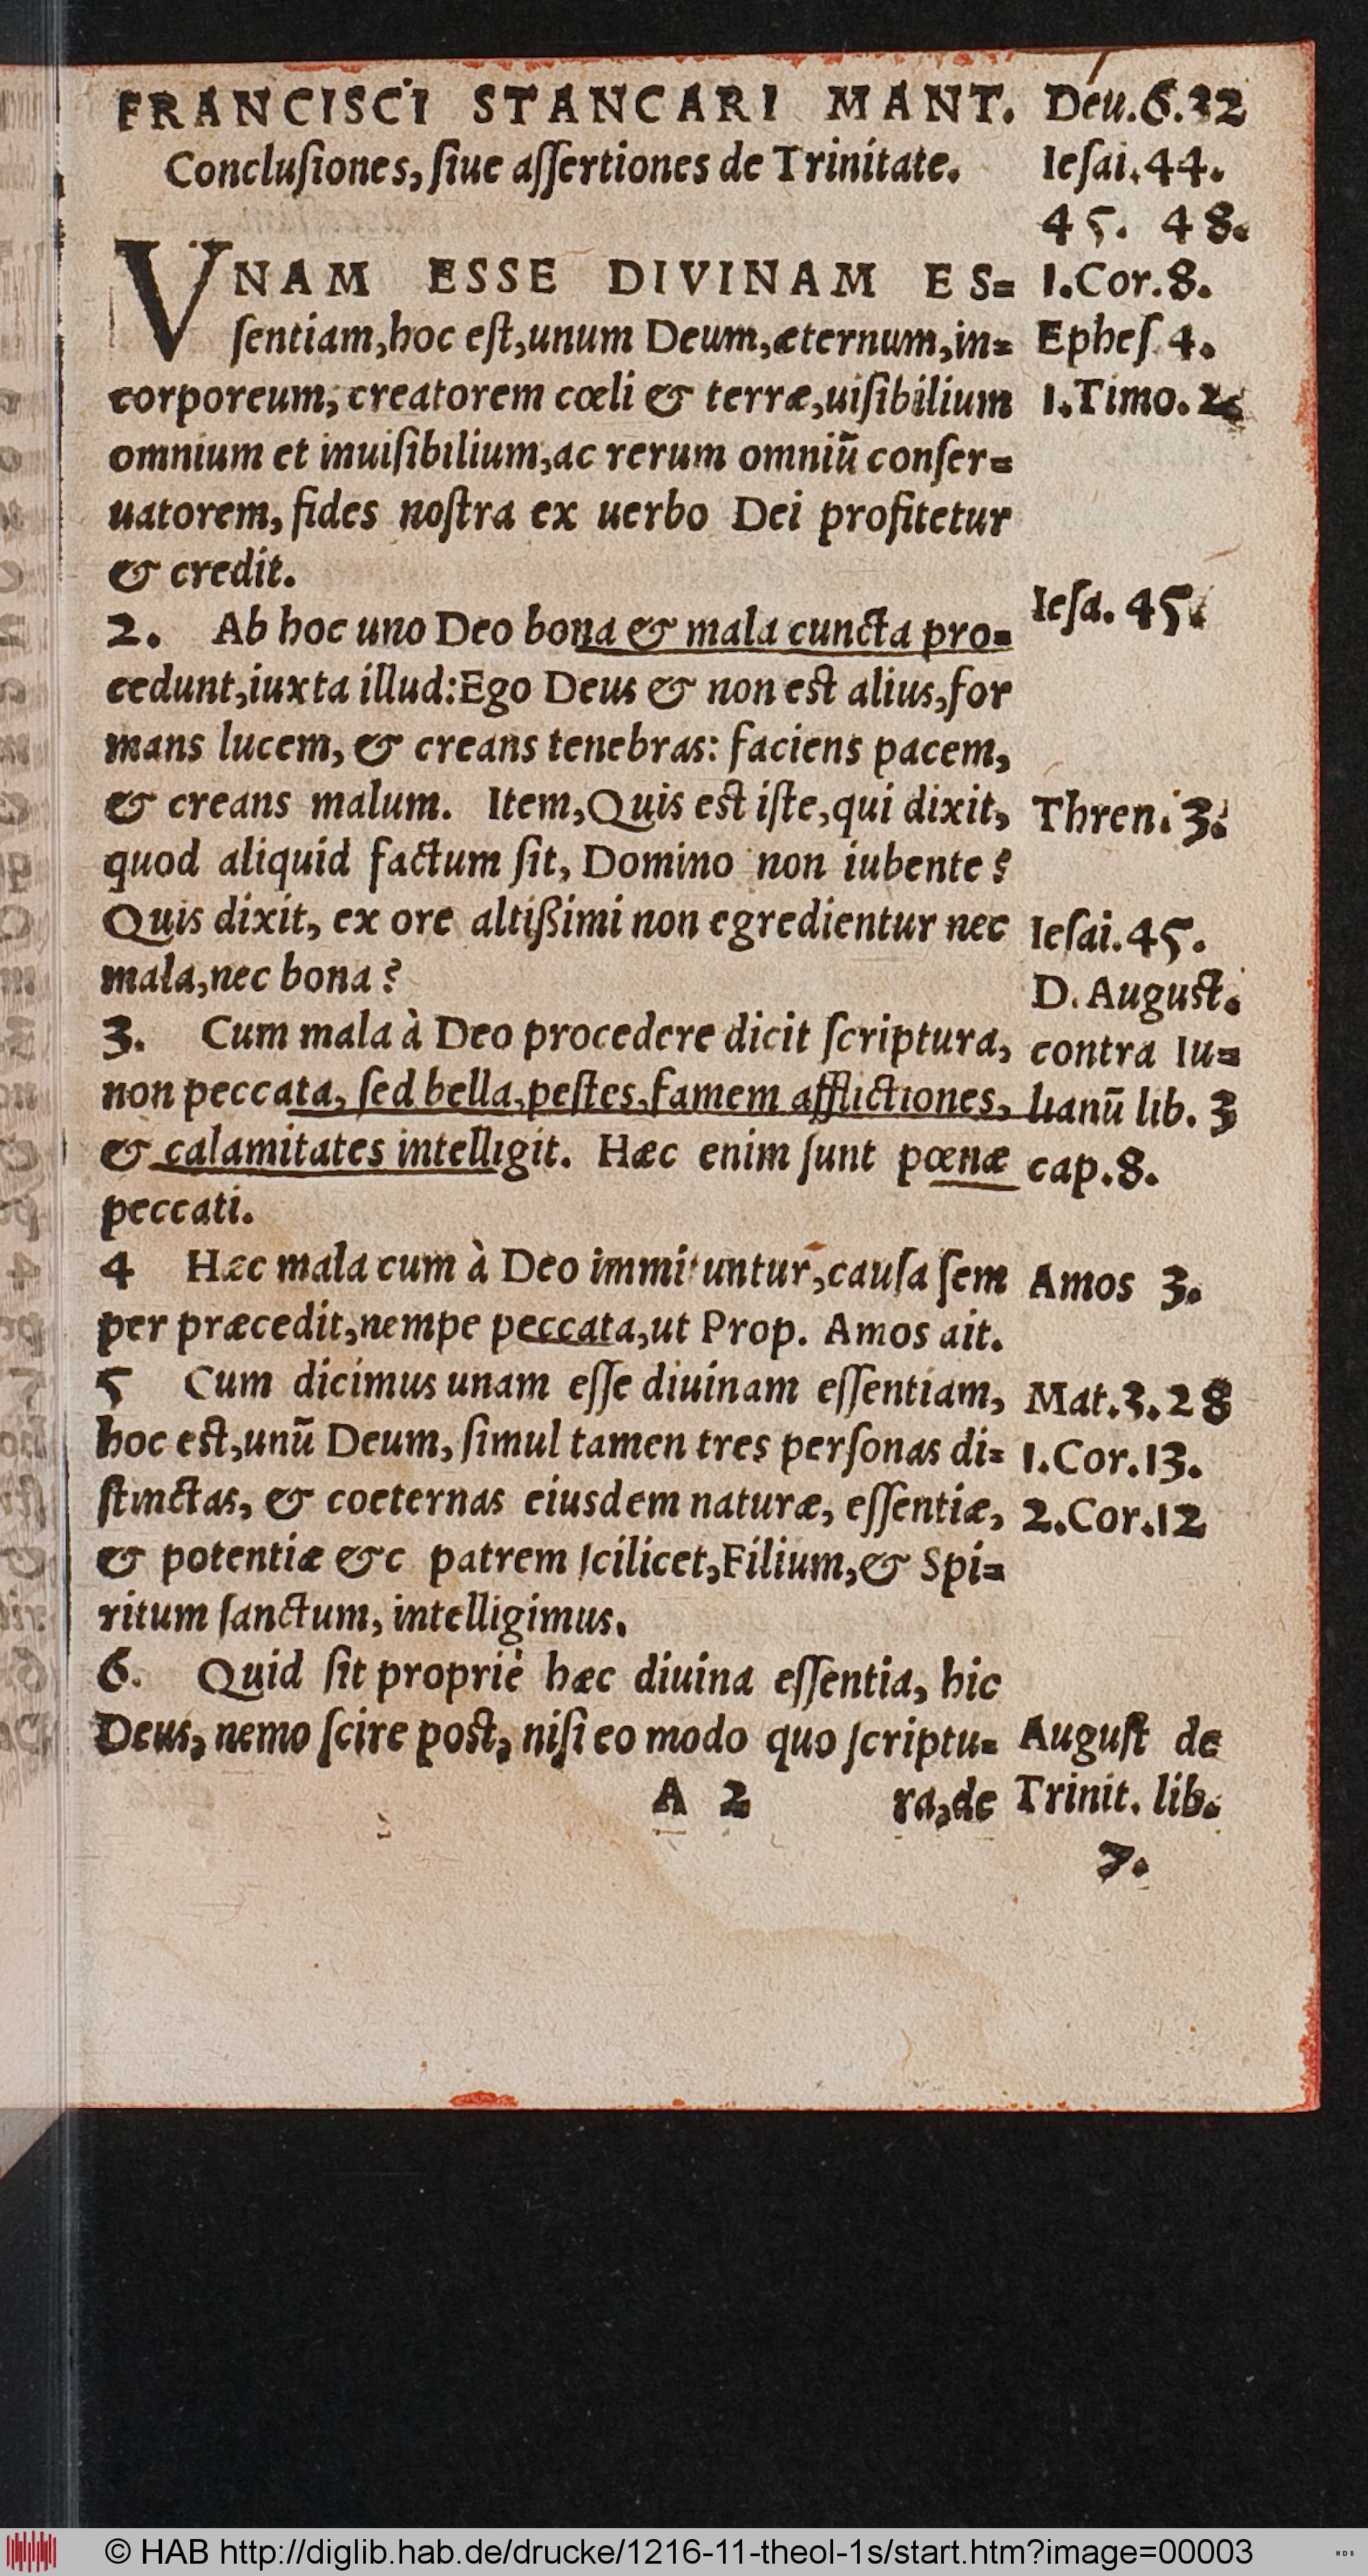 FRANCISCI STANCARI MANT.
Concluſiones, ſiue aſſertiones de Trinitate.
VNAM ESSE DIVINAM ES=
ſentiam, hoc eſt, unum Deum, æternum, in=
corporeum, creatorem cœli & terræ, uiſibilium
omnium et inuiſibilium, ac rerum omniū conſer=
uatorem, fides noſtra ex uerbo Dei profitetur
& credit.
2. Ab hoc uno Deo bona & mala cuncta pro=
cedunt, iuxta illud: Ego Deus & non eſt alius, for
mans lucem, & creans tenebras: faciens pacem,
& creans malum. Item, Quis eſt iſte, qui dixit,
quod aliquid factum ſit, Domino non iubente?
Quis dixit, ex ore altißimi non egredientur nec
mala, nec bona?
3. Cum mala à Deo procedere dicit ſcriptura,
non peccata, ſed bella, peſtes, famem afflictiones,
& calamitates intelligit. Hæc enim ſunt pœnæ
peccati.
4 Hæc mala cum à Deo immituntur, cauſa ſem
per præcedit, nempe peccata, ut Prop. Amos ait.
5 Cum dicimus unam eſſe diuinam eſſentiam,
hoc eſt, unū Deum, ſimul tamen tres perſonas di=
ſtinctas, & coeternas eiusdem naturæ, eſſentiæ,
& potentiæ &c patrem ſcilicet, Filium, & Spi=
ritum ſanctum, intelligimus.
6. Quid ſit propriè hæc diuina eſſentia, hic
Deus, nemo ſcire poſt, niſi eo modo quo ſcriptu=
A 2 ra, de
Deu. 6. 32
Ieſai. 44.
45. 48.
1. Cor. 8.
Epheſ 4.
1. Timo. 2
Ieſa. 45.
Thren. 3.
Ieſai. 45.
D. Auguſt.
contra Iu=
lianū lib. 3
cap. 8.
Amos 3.
Mat. 3. 28
1. Cor. 13.
2. Cor. 12
Auguſt de
Trinit. lib.
7.
© HAB http://diglib.hab.de/drucke/1216-11-theol-1s/start.htm?image=00003